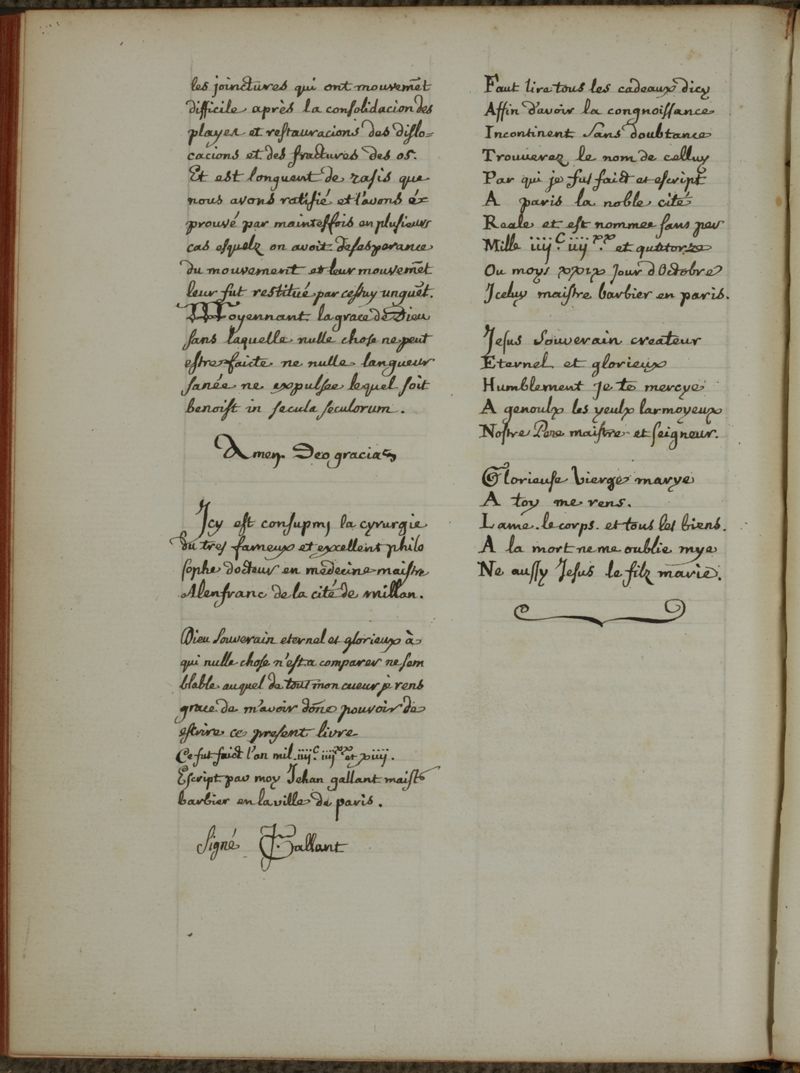 les joinctures qui ont mouvemẽt
difficile après la consolidacion des
playes et restauracions des dislo=
cacions et des fractures des os.
Et est longuent de rasis que
nous avons ratifié et l'avons éx
prouvé par maintesfois en plusieurs
cas esquelz on avoit desesperance
du mouvement et leur mouvemẽt
leur fut restitué par cestuy unguẽt.
Moyennant la grace de Dieu
sans laquelle nulle chose ne peut
estre faicte ne nulle langueur
sanée ne expulsee lequel soit
benoist in secula seculorum.
Amen. Deo gracias
Icy est consupmj la cyrurgie
du tres fameux et excellent philo
sophe docteur en medecine maistre
Alenfranc de la cité de millan.
Dieu souverain eternel et glorieux à
qui nulle chose n'est a comparer ne sem
blable auquel de tout mon cueur je rens
grace de m'avoir dõne pouvoir de
escrire ce present livre
Ce fut faict l'an mil. iiij.C iiij.xx et xiiij.
Escript par moy Jehan gallant maistre
barbier en la ville de paris.
Signé J. Gallant
Faut lire tous les cadeaux dicy
Affin d'avoir la congnoissance
Incontinent sans doubtance
Trouverez le nom de celluy
Par qui je fus faict et escript
A paris la noble cité
Reale et est nommee sans per
Mille iiij.C iiij.xx et qutitorze
Ou moys xxix Jour d'Octobre
Iceluy maistre barbier en paris.
Jesus Souverain createur
Eternel et glorieux
Humblement Je te mercye
A genoulx les yeulx larmoyeux
Nostre Pere maistre et seigneur.
Glorieuse Vierge marye
A toy me rens.
Lame. le corps. et tous les biens.
A la mort ne me oublie mye
Ne aussy Jesus le filz marie.